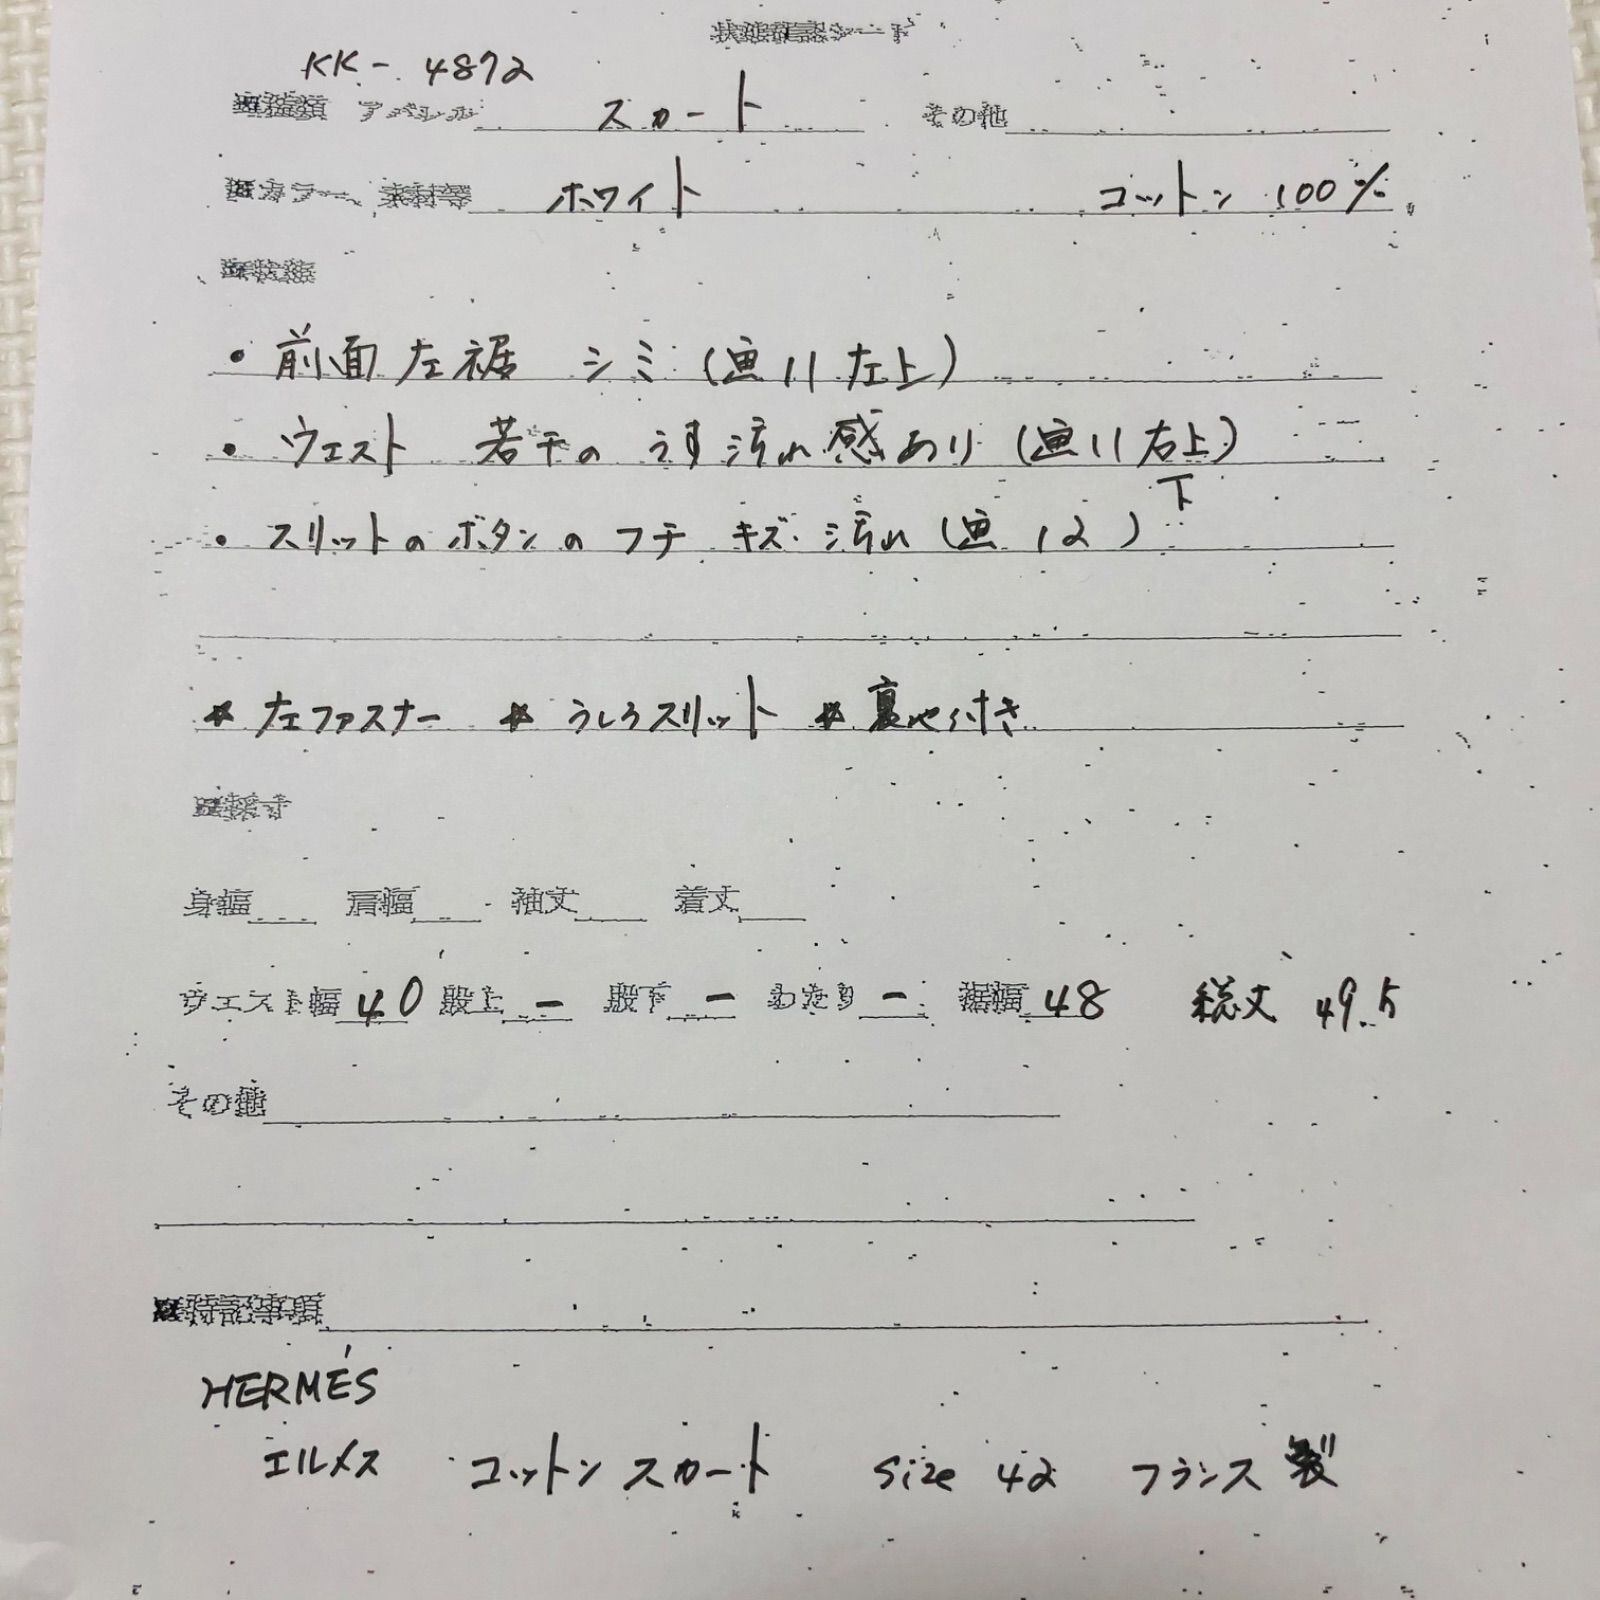 状態確認シート
KK-4872
■種類 アパレル スカート その他
■カラー、素材等 ホワイト コットン 100%
■状態
・前面左裾 シミ(画11左上)
・ウエスト 若干のうす汚れ感あり(画11右上)
下
・スリットのボタンのフチ キズ・汚れ(画12)
☆左ファスナー ☆うしろスリット ☆裏地付き
■採寸
身幅 肩幅 袖丈 着丈
ウエスト幅 40 股上 - 股下 - わたり - 裾幅 48 総丈 49.5
その他
■特記事項
HERMÉS
エルメス コットンスカート size 42 フランス製